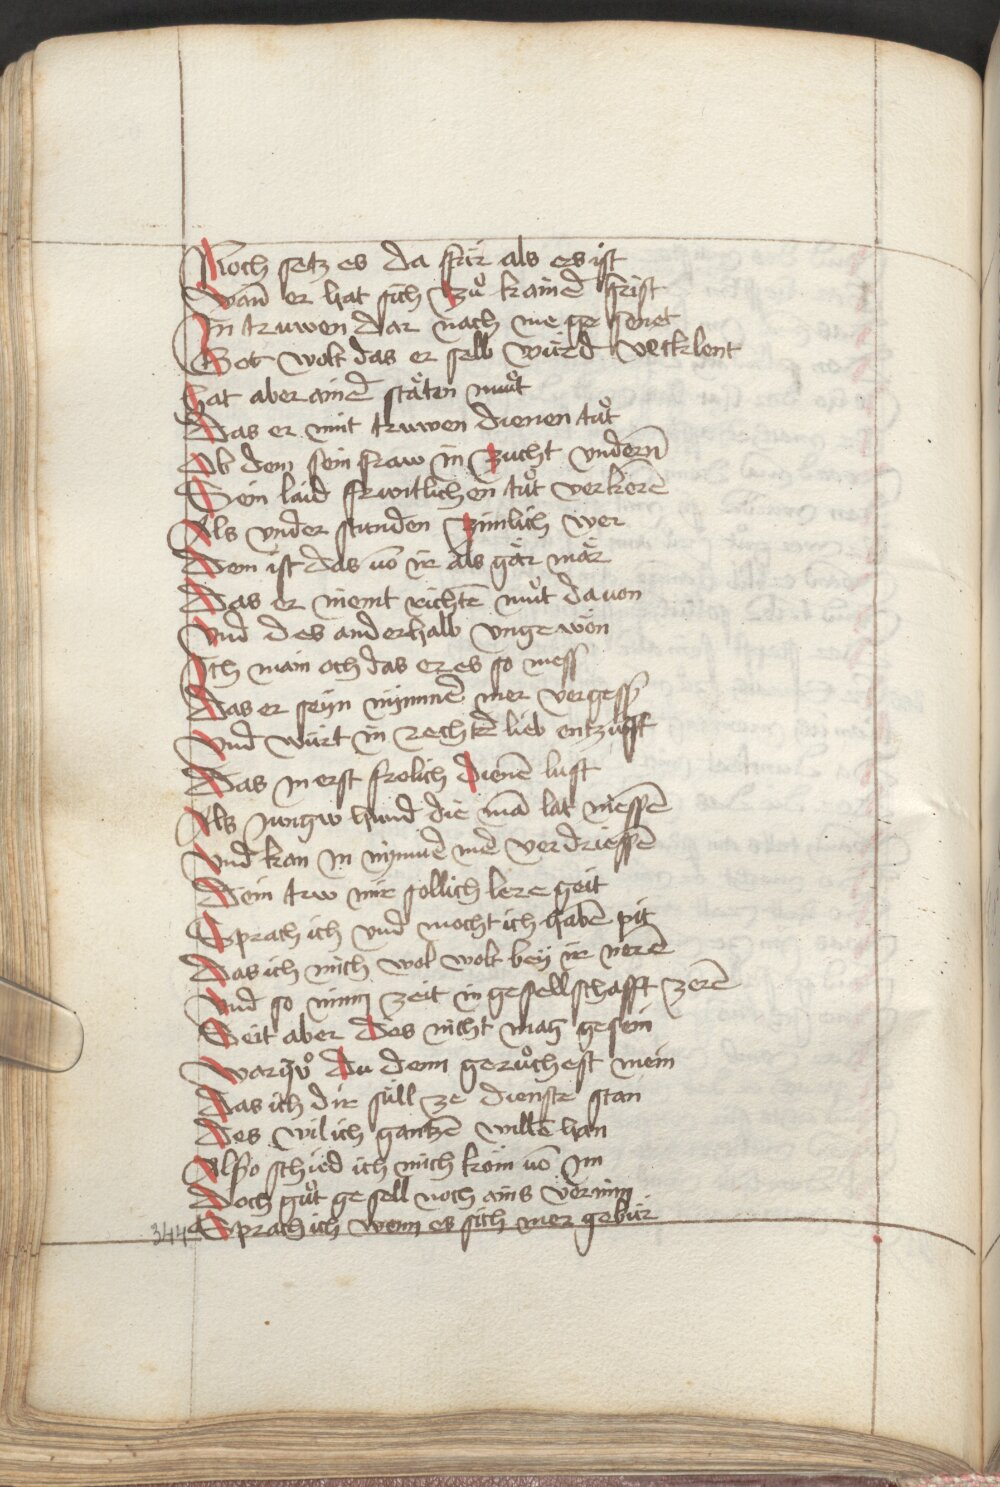 Noch setz es da für als es ist
Wān er hat sich zů kainer frist
In truwen dar nach me ge senet
Got wolt das er selb würd verklent
hat aber ainer stäten můt
Das er mit truwen dienen tůt
Ob dem sein fraw in zucht vndern̄
Sein laid fruntlichen tůt verkerē
Als vnder stunden zimlich wer
Dem ist das vō ir als gär mär
Das er niemt richtē můt dauon
Vnd des anderhalb vngewön
Ich main och das er es so mess
Das er seyn nymmer mer vergess
Vnd würt in rechter lieb entzupft
Das in erst frolich dienē lust
Als jungw hund die mā lat niessē
Vnd kan in nymmer mer verdriessē
Dein trw mir sollich lere geit
Sprach ich vnd mocht ich haben pit
Das ich mich wol wolt bey ir nerē
Vnd so ming zeit in gesellschafft zerē
Seit aber des nicht mag gesein
Warzů du denn gerůchest mein
Das ich dir süll ze dienste stan
Des wil ich gantzē willē han
Also schied ich mich kom vō im
Doch gůt ge sell noch ains vernim
Sprach ich wenn es sich mer gebür
344